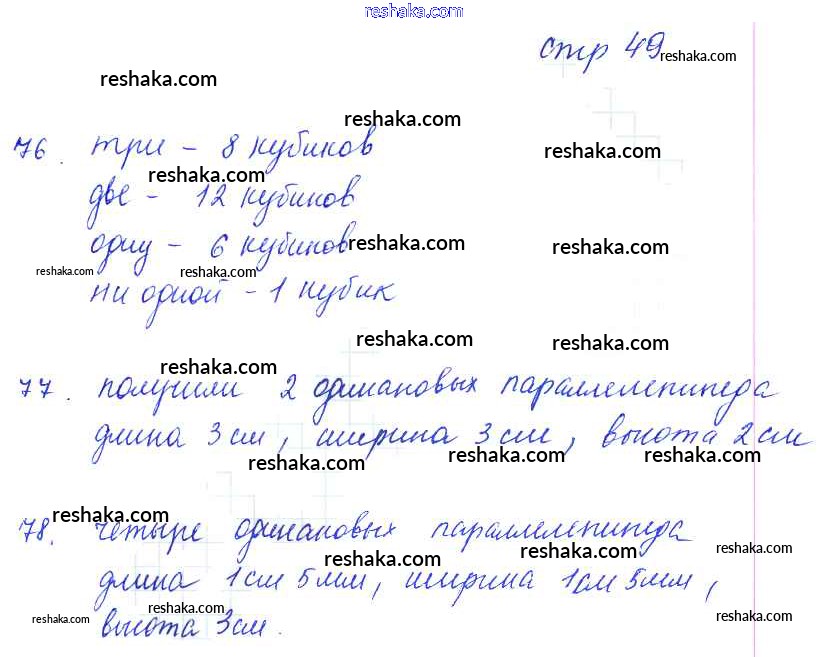 reshaka.com
стр 49 reshaka.com
reshaka.com
reshaka.com
76. три - 8 кубиков
reshaka.com
reshaka.com
две - 12 кубиков
одну - 6 кубиков reshaka.com
reshaka.com
reshaka.com reshaka.com
ни одной - 1 кубик
reshaka.com
reshaka.com
reshaka.com
77. получили 2 одинаковых параллелепипеда
длина 3 см, ширина 3 см, высота 2 см
reshaka.com reshaka.com reshaka.com
reshaka.com
78. четыре одинаковых параллелепипеда
reshaka.com reshaka.com reshaka.com
длина 1 см 5 мм, ширина 1 см 5 мм,
reshaka.com reshaka.com reshaka.com
высота 3 см.